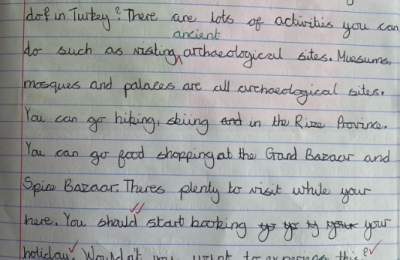 do? in Turkey? There are lots of activities you can
ancient
do such as visiting archaeological sites. Museums,
mosques and palaces are all archaeological sites.
You can go hiking, skiing and in the Rize Province.
You can go food shopping at the Grand Bazaar and
Spice Bazaar. Theres plenty to visit while your
here. You should start booking your
holiday. Wouldn't you want to experience this?